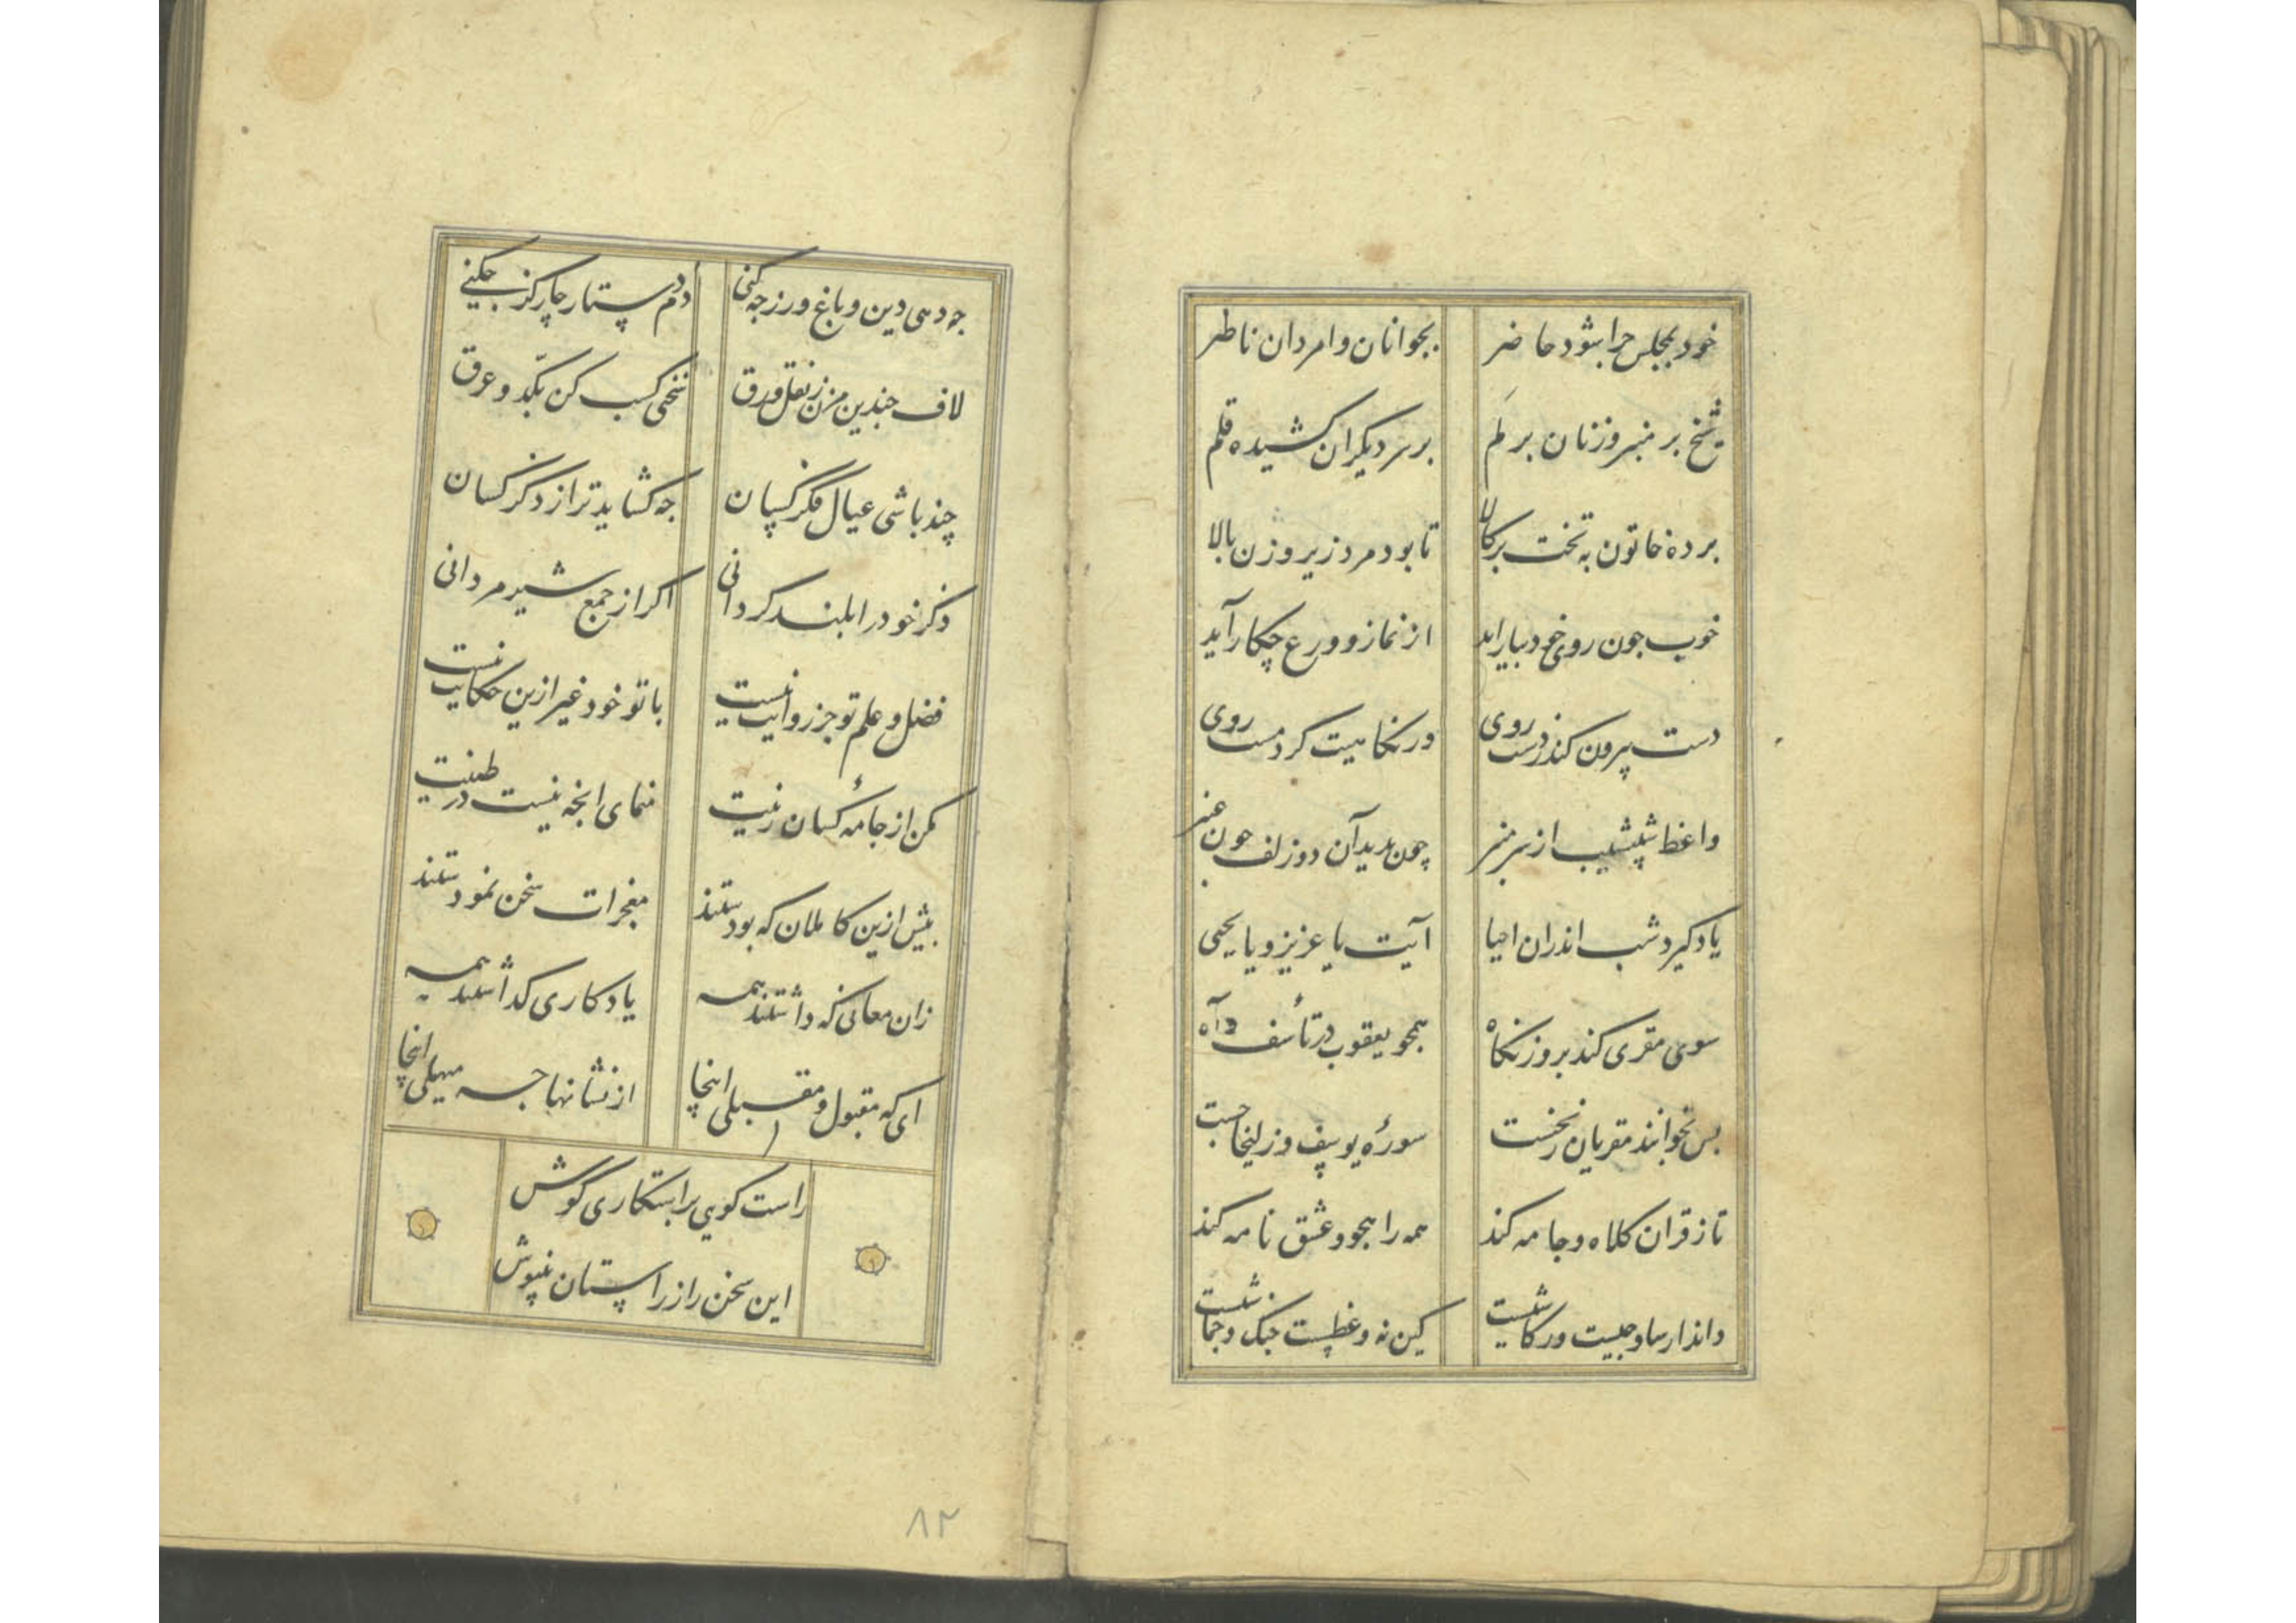 خود بمجلس چرا شود حاضر بجوانان و امردان ناظر
شیخ بر منبر و زنان بر لم بر سر دیکران کشیده قلم
برده خاتون به تخت بر کالا تا بود مرد زیر و زن بالا
خوب جون روی خود بیاراید از نماز و ورع چکار آید
دست پیرون کند ز دست روی در نکاهیت کرد مست روی
واعظ شیشیب از سر منبر چون بدید آن دو زلف چون عنبر
یاد کیرد شب اندران احیا آیت یا عزیز و یا یحیی
سوی مقری کند بروز نکاه همجو یعقوب در تأسف و آه
بس بخوانند مقریان ز نخست سورهٔ یوسف و زلیخا جست
تا ز قران کلاه و جامه کند همه را همجو عشق نامه کند
داند ار ساوجیست ور کاشیست کین نه وعظست جنک و جماشیست
جه دهی دین و باغ و رز جه کنی دم دستار چار کز جکنی
لاف جندین مزن ز نقل و ورق سخنی کسب کن بکد و عرق
چند باشی عیال فکر کسان جه کشاید ترا ز ذکر کسان
ذکر خود را بلند کردانی اکر از جمع شیر مردانی
فضل و علم تو جز روایت نیست با تو خود غیر ازین حکایت نیست
مکن از جامهٔ کسان زینت منمای انجه نیست در طینت
بیش ازین کاملان که بودستند معجزات سخن نمودستند
زان معانی که داشتند همه یادکاری کذاشتند همه
ای که مقبول و مقبلی اینجا از نشانها جه مهملی اینجا
راست کویی براستکاری کوش
این سخن را ز راستان بنیوش
۸۲